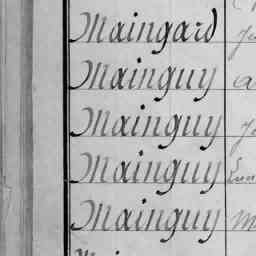 Maingard
Mainguy
Mainguy
Mainguy
Mainguy